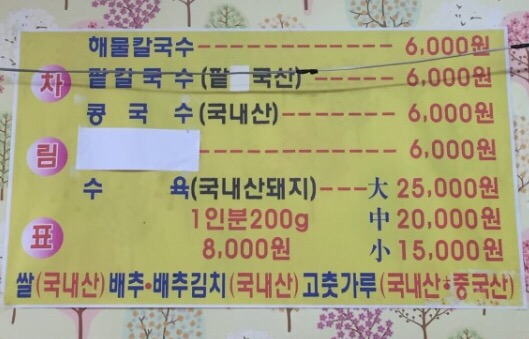 해물칼국수------------ 6,000원
차 팥칼국수(팥 국산)--------- 6,000원
콩국수(국내산)--------- 6,000원
림 ------------ 6,000원
수 육(국내산돼지)---大 25,000원
1인분200g 中 20,000원
표 8,000원 小 15,000원
쌀(국내산)배추·배추김치(국내산)고춧가루(국내산+중국산)